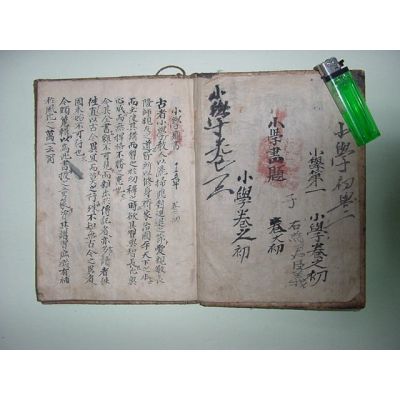 小學初卷二
小學卷之初
小學第一
小學書題
卷之初
小學卷之初
小學
小學書題
古者小學教人以灑掃應對進退之節愛親敬長
隆師親友之道皆所以修身齊家治國平天下之本
而必使其講而習之於幼穉之時欲其習與智長化與
心成而無扞格不勝之患也
今其全書雖不可見而雜出於傳記者亦多讀者往
往直以古今異宜而莫之行殊不知其無古今之異者
固未始不可行也
今頗蒐輯以為此書授之童蒙資其講習庶幾有補
於風化之萬一云爾